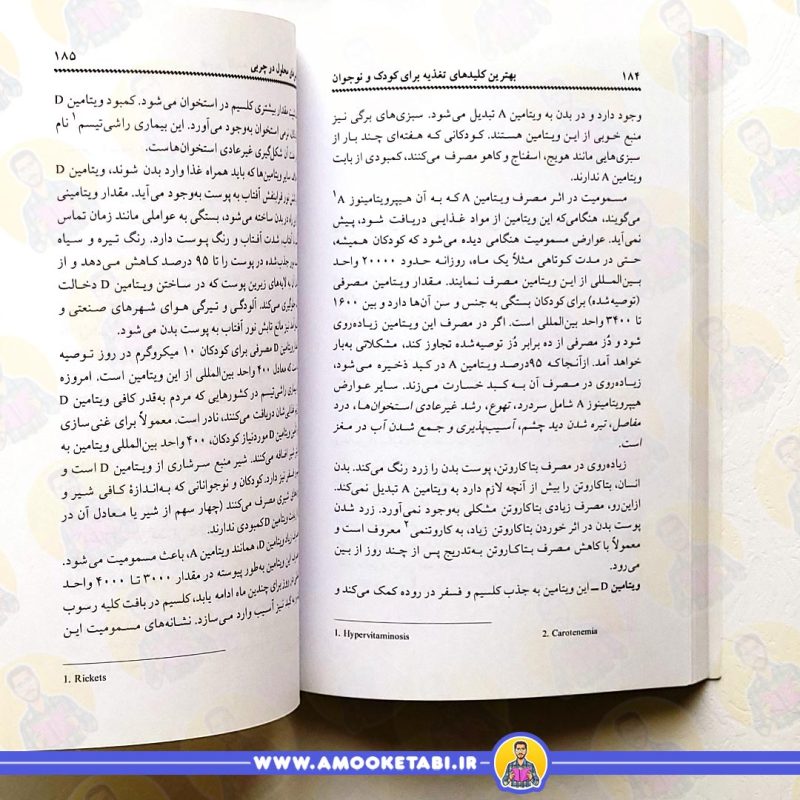 ۱۸۴
بهترین کلیدهای تغذیه برای کودک و نوجوان
وجود دارد و در بدن به ویتامین A تبدیل می‌شود. سبزی‌های برگی نیز
منبع خوبی از این ویتامین هستند. کودکانی که هفته‌ای چند بار از
سبزی‌هایی مانند هویج، اسفناج و کاهو مصرف می‌کنند، کمبودی از بابت
ویتامین A ندارند.
مسمومیت در اثر مصرف ویتامین A که به آن هیپرویتامینوز A۱
می‌گویند، هنگامی‌که این ویتامین از مواد غذایی دریافت شود، پیش
نمی‌آید. عوارض مسمومیت هنگامی دیده می‌شود که کودکان همیشه،
حتی در مدت کوتاهی مثلاً یک ماه، روزانه حدود ۲۰۰۰۰ واحد
بین‌المللی از این ویتامین مصرف نمایند. مقدار ویتامین مصرفی
(توصیه‌شده) برای کودکان بستگی به جنس و سن آن‌ها دارد و بین ۱۶۰۰
تا ۳۴۰۰ واحد بین‌المللی است. اگر در مصرف این ویتامین زیاده‌روی
شود و دُز مصرفی از ده برابر دُز توصیه‌شده تجاوز کند، مشکلاتی به‌بار
خواهد آمد. ازآنجاکه ۹۵درصد ویتامین A در کبد ذخیره می‌شود،
زیاده‌روی در مصرف آن به کبد خسارت می‌زند. سایر عوارض
هیپرویتامینوز A شامل سردرد، تهوع، رشد غیرعادی استخوان‌ها، درد
مفاصل، تیره شدن دید چشم، آسیب‌پذیری و جمع شدن آب در مغز
است.
زیاده‌روی در مصرف بتاکاروتن، پوست بدن را زرد رنگ می‌کند. بدن
انسان، بتاکاروتن را بیش از آنچه لازم دارد به ویتامین A تبدیل نمی‌کند.
ازاین‌رو، مصرف زیادی بتاکاروتن مشکلی به‌وجود نمی‌آورد. زرد شدن
پوست بدن در اثر خوردن بتاکاروتن زیاد، به کاروتنمی۲ معروف است و
معمولاً با کاهش مصرف بتاکاروتن به‌تدریج پس از چند روز از بین
می‌رود.
ویتامین D ــ این ویتامین به جذب کلسیم و فسفر در روده کمک می‌کند و
1. Hypervitaminosis
2. Carotenemia
محلول در چربی
۱۸۵
مقدار بیشتری کلسیم در استخوان می‌شود. کمبود ویتامین D
نرمی استخوان به‌وجود می‌آورد. این بیماری راشی‌تیسم۱ نام
آن شکل‌گیری غیرعادی استخوان‌هاست.
سایر ویتامین‌ها که باید همراه غذا وارد بدن شوند، ویتامین D
نور فرابنفش آفتاب به پوست به‌وجود می‌آید. مقدار ویتامینی
در بدن ساخته می‌شود، بستگی به عواملی مانند زمان تماس
آفتاب، شدت آفتاب و رنگ پوست دارد. رنگ تیره و سیاه
جذب‌شده در پوست را تا ۹۵ درصد کاهش می‌دهد و از
به لایه‌های زیرین پوست که در ساختن ویتامین D دخالت
می‌کند. آلودگی و تیرگی هوای شهرهای صنعتی و
نیز مانع تابش نور آفتاب به پوست بدن می‌شود.
ویتامین D مصرفی برای کودکان ۱۰ میکروگرم در روز توصیه
که معادل ۴۰۰ واحد بین‌المللی از این ویتامین است. امروزه
راشی‌تیسم در کشورهایی که مردم به‌قدر کافی ویتامین D
دریافت می‌کنند، نادر است. معمولاً برای غنی‌سازی
D موردنیاز کودکان، ۴۰۰ واحد بین‌المللی ویتامین به
اضافه می‌کنند. شیر منبع سرشاری از ویتامین D است و
نیز دارد. کودکان و نوجوانانی که به‌اندازهٔ کافی شیر و
مصرف می‌کنند (چهار سهم از شیر یا معادل آن در
ویتامین D کمبودی ندارند.
زیاد ویتامین D، همانند ویتامین A، باعث مسمومیت می‌شود.
این ویتامین به‌طور پیوسته در مقدار ۳۰۰۰ تا ۴۰۰۰ واحد
روز برای چندین ماه ادامه یابد، کلسیم در بافت کلیه رسوب
کبد نیز آسیب وارد می‌سازد. نشانه‌های مسمومیت این
1. Rickets
WWW.AMOOKETABI.IR